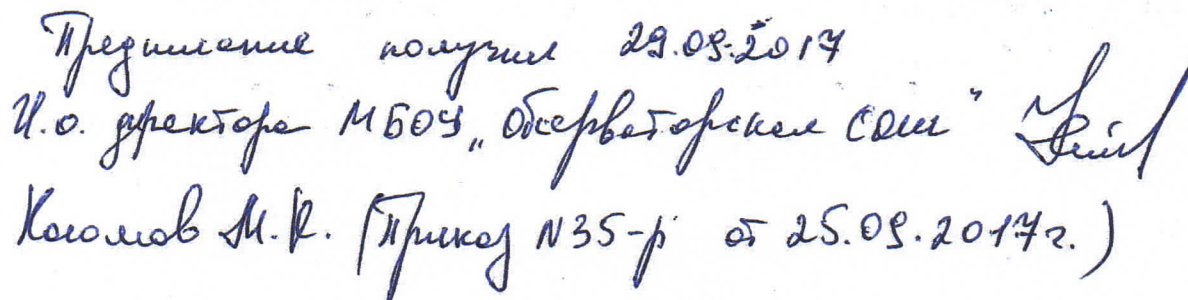 Предписание получил 29.09.2017
И.о. директора МБОУ „Обсерваторская СОШ"
М.К. (Приказ N35-р от 25.09.2017г.)